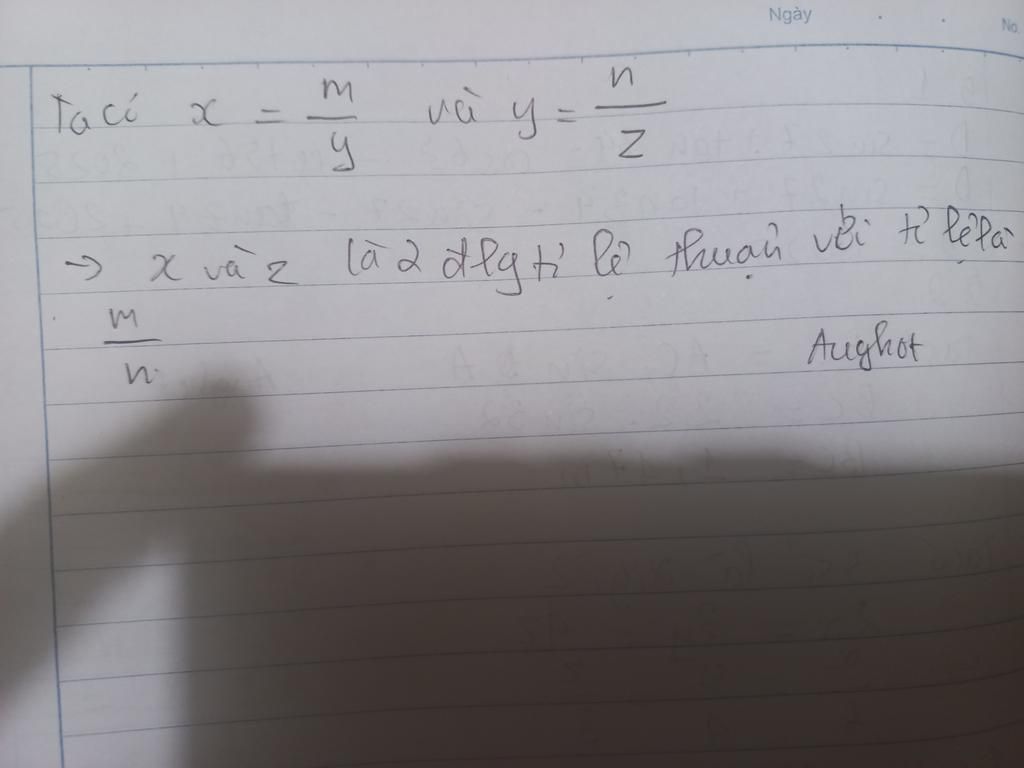 Ngày
No.
Ta có x = m/y và y = n/z
→ x và z là 2 đlg tỉ lệ thuận với tỉ lệ là
m/n
Aughot